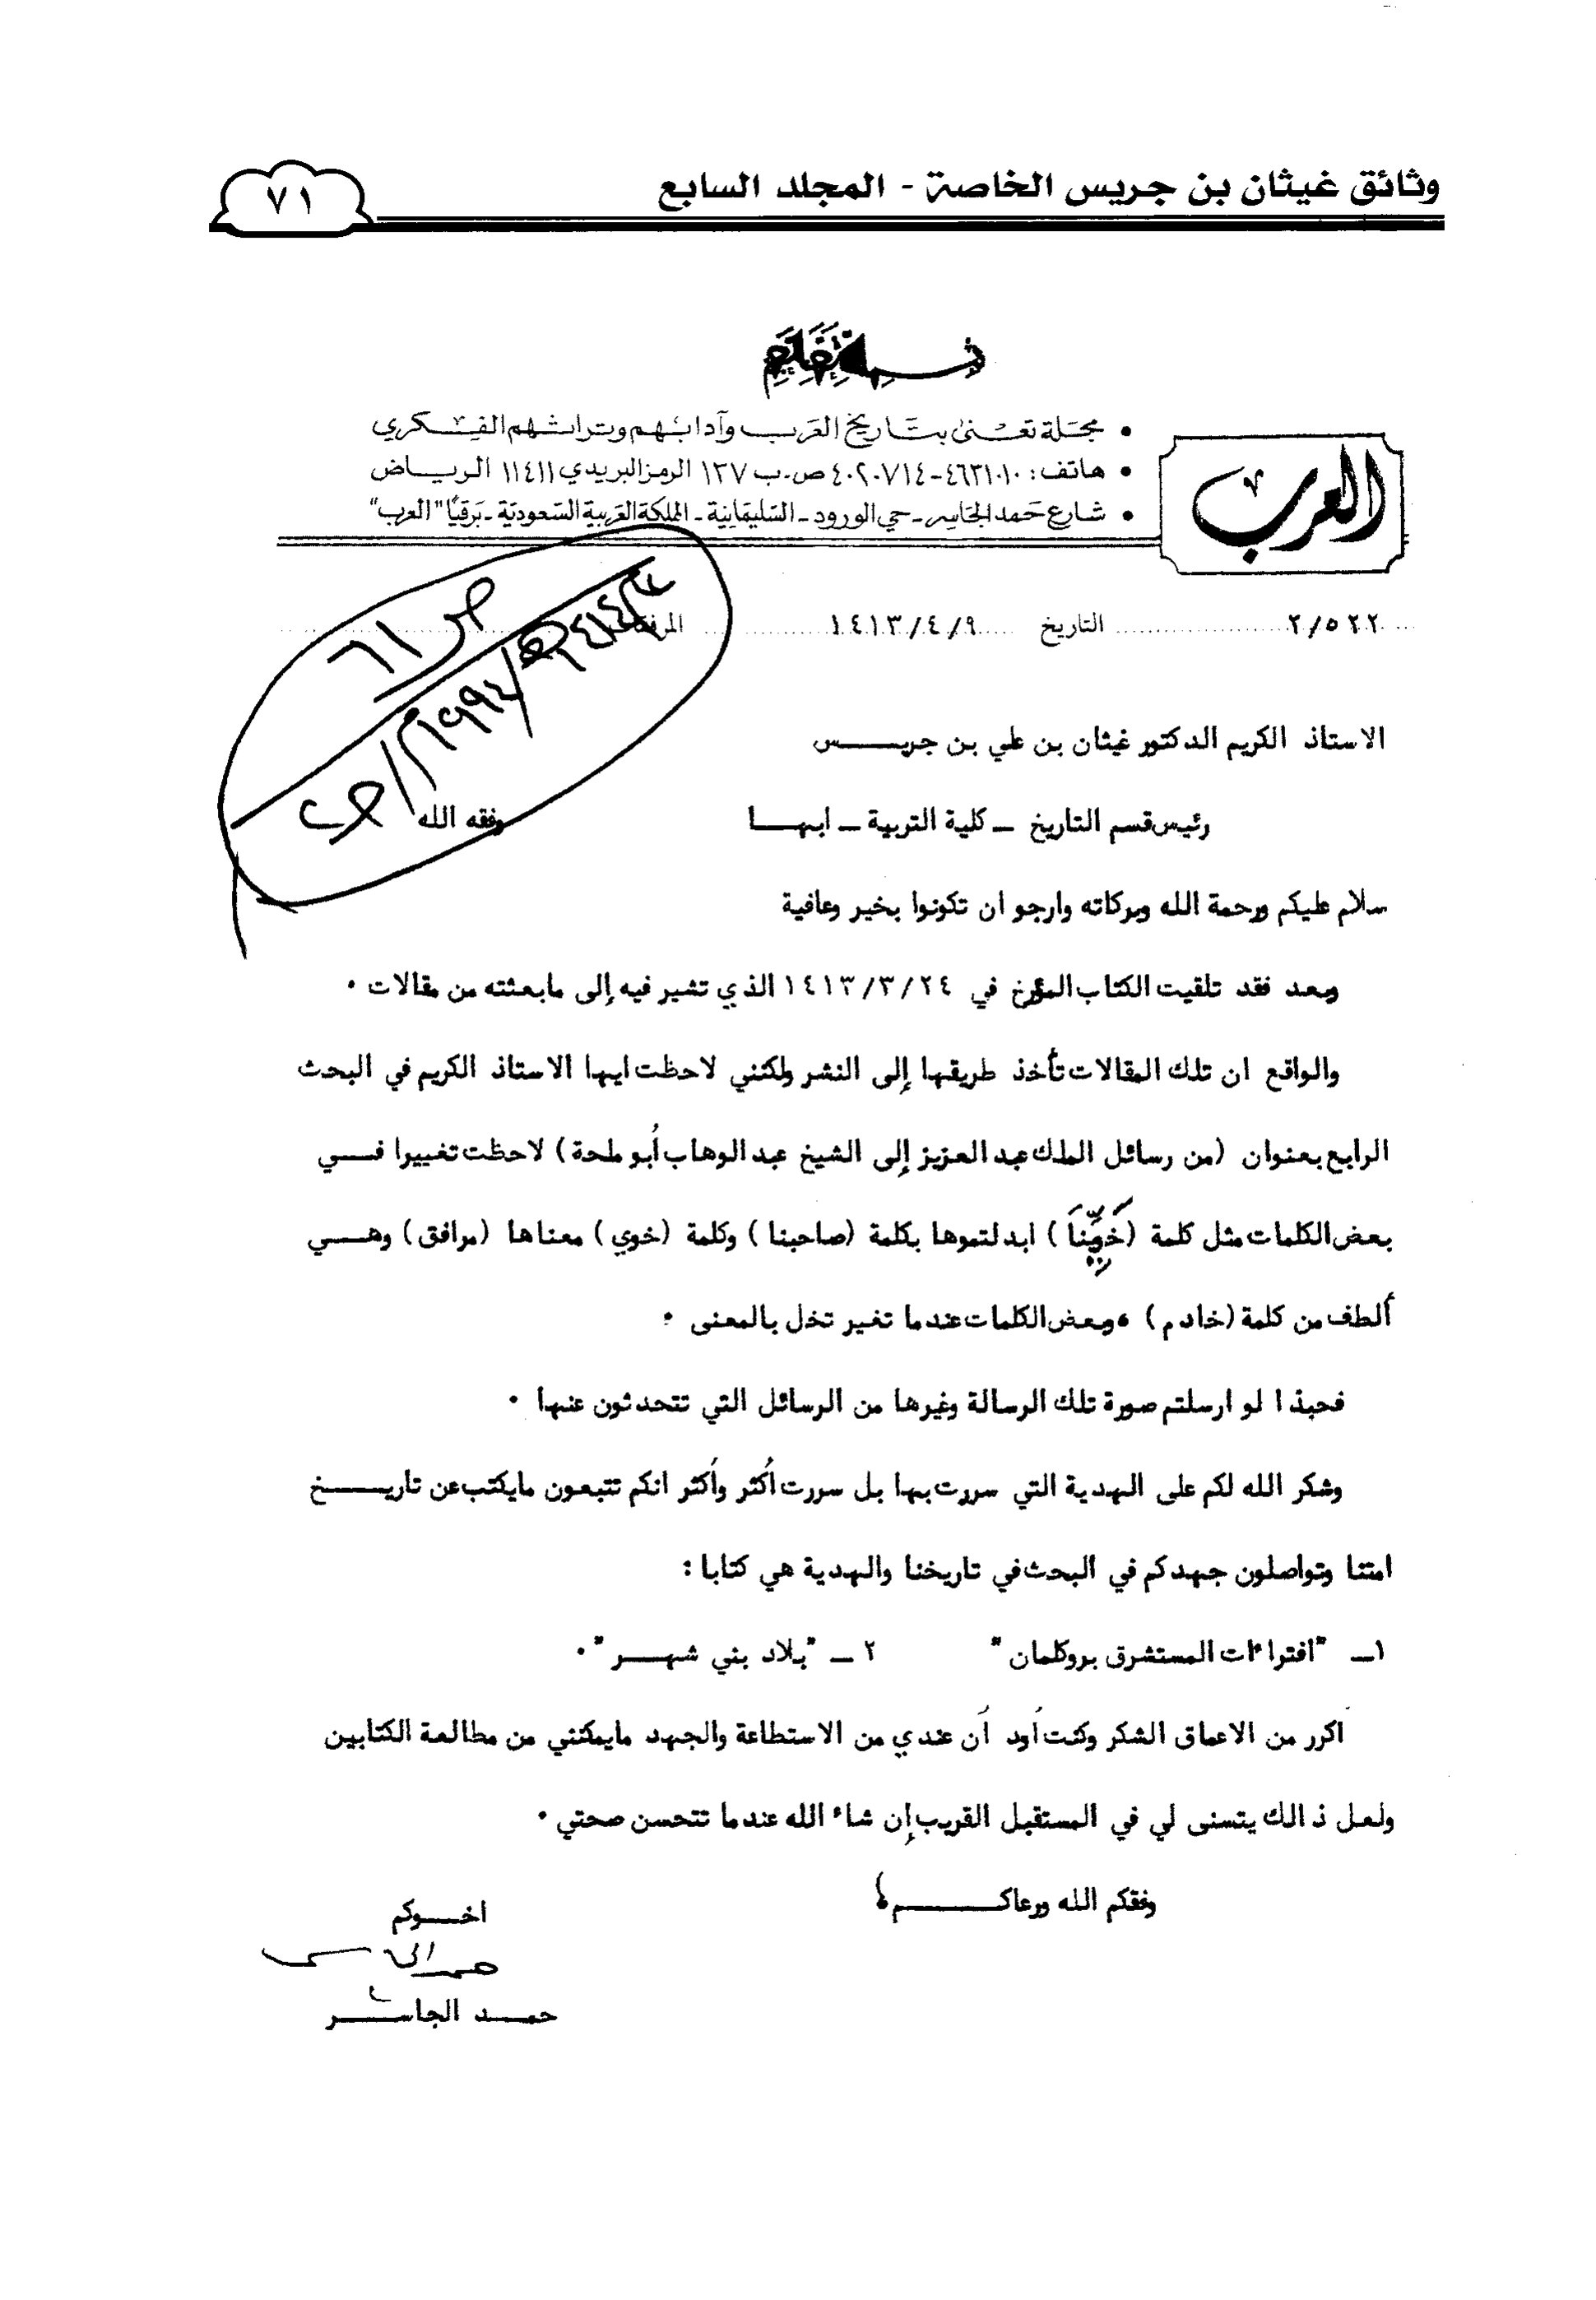 وثائق غيثان بن جريس الخاصة - المجلد السابع
٧١
العرب
• مجلة تعنى بتاريخ العرب وآدابهم وتراثهم الفكري
• هاتف: ٤٦٣١٠١٠-٤٠٢٠٧١٤ ص.ب ١٣٧ الرمز البريدي ١١٤١١ الرياض
• شارع حمد الجاسر - حي الورود - السليمانية - المملكة العربية السعودية - برقيًا "العرب"
٢/٥٢٢ التاريخ ١٤١٣/٤/٩ المرفقات
ص ٦١
الاستاذ الكريم الدكتور غيثان بن علي بن جريس
رئيس قسم التاريخ - كلية التربية - ابها وفقه الله
سلام عليكم ورحمة الله وبركاته وارجو ان تكونوا بخير وعافية
وبعد فقد تلقيت الكتاب المؤرخ في ١٤١٣/٣/٢٤ الذي تشير فيه إلى مابعثته من مقالات .
والواقع ان تلك المقالات تأخذ طريقها إلى النشر ولكنني لاحظت ايها الاستاذ الكريم في البحث
الرابع بعنوان (من رسائل الملك عبد العزيز إلى الشيخ عبد الوهاب أبو ملحة) لاحظت تغييرا في
بعض الكلمات مثل كلمة (خَوِيِّنَا) ابدلتموها بكلمة (صاحبنا) وكلمة (خوي) معناها (مرافق) وهي
ألطف من كلمة (خادم) ، وبعض الكلمات عندما تغير تخل بالمعنى .
فحبذا لو ارسلتم صورة تلك الرسالة وغيرها من الرسائل التي تتحدثون عنها .
وشكر الله لكم على الهدية التي سررت بها بل سررت أكثر وأكثر انكم تتبعون مايكتب عن تاريخ
امتنا وتواصلون جهدكم في البحث في تاريخنا والهدية هي كتابا :
١- "افتراءات المستشرق بروكلمان" ٢ - "بلاد بني شهر" .
اكرر من الاعماق الشكر وكنت أود أن عندي من الاستطاعة والجهد مايمكنني من مطالعة الكتابين
ولعل ذالك يتسنى لي في المستقبل القريب إن شاء الله عندما تتحسن صحتي .
وفقكم الله ورعاكم ،
اخوكم
حمد الجاسر